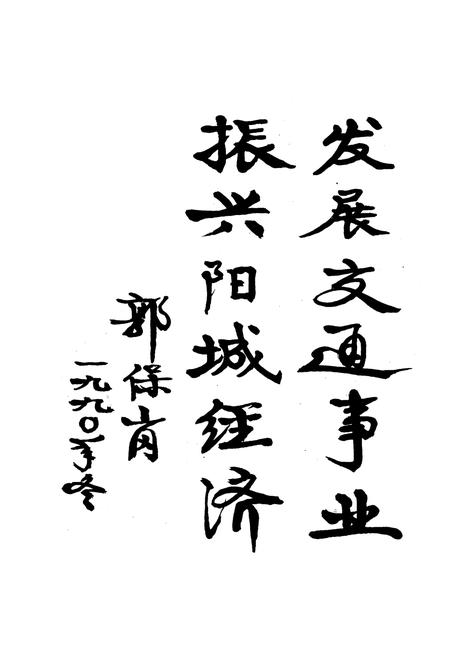 发展交通事业
振兴阳城经济
郭保岗
一九九〇年冬